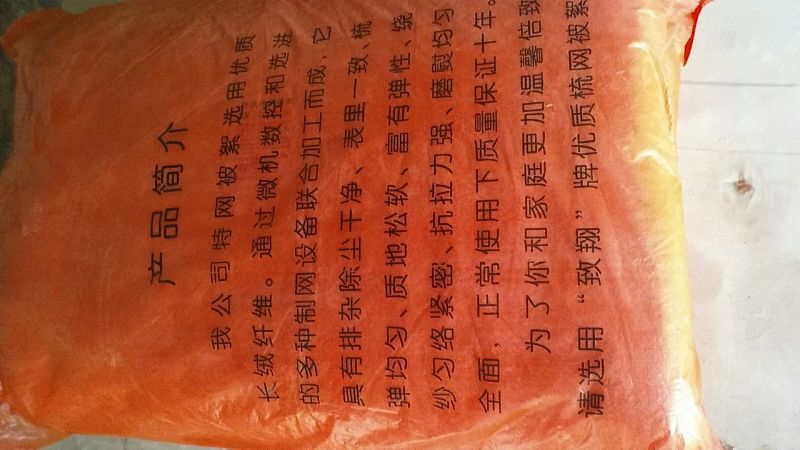 产品简介
我公司特网被絮选用优质
长绒纤维。通过微机数控和选进
的多种制网设备联合加工而成，它
具有排杂除尘干净、表里一致、梳
弹均匀、质地松软、富有弹性、绕
纱匀络紧密、抗拉力强、磨熨均匀
全面，正常使用下质量保证十年。
为了你和家庭更加温馨倍致
请选用“致翔”牌优质梳网被絮